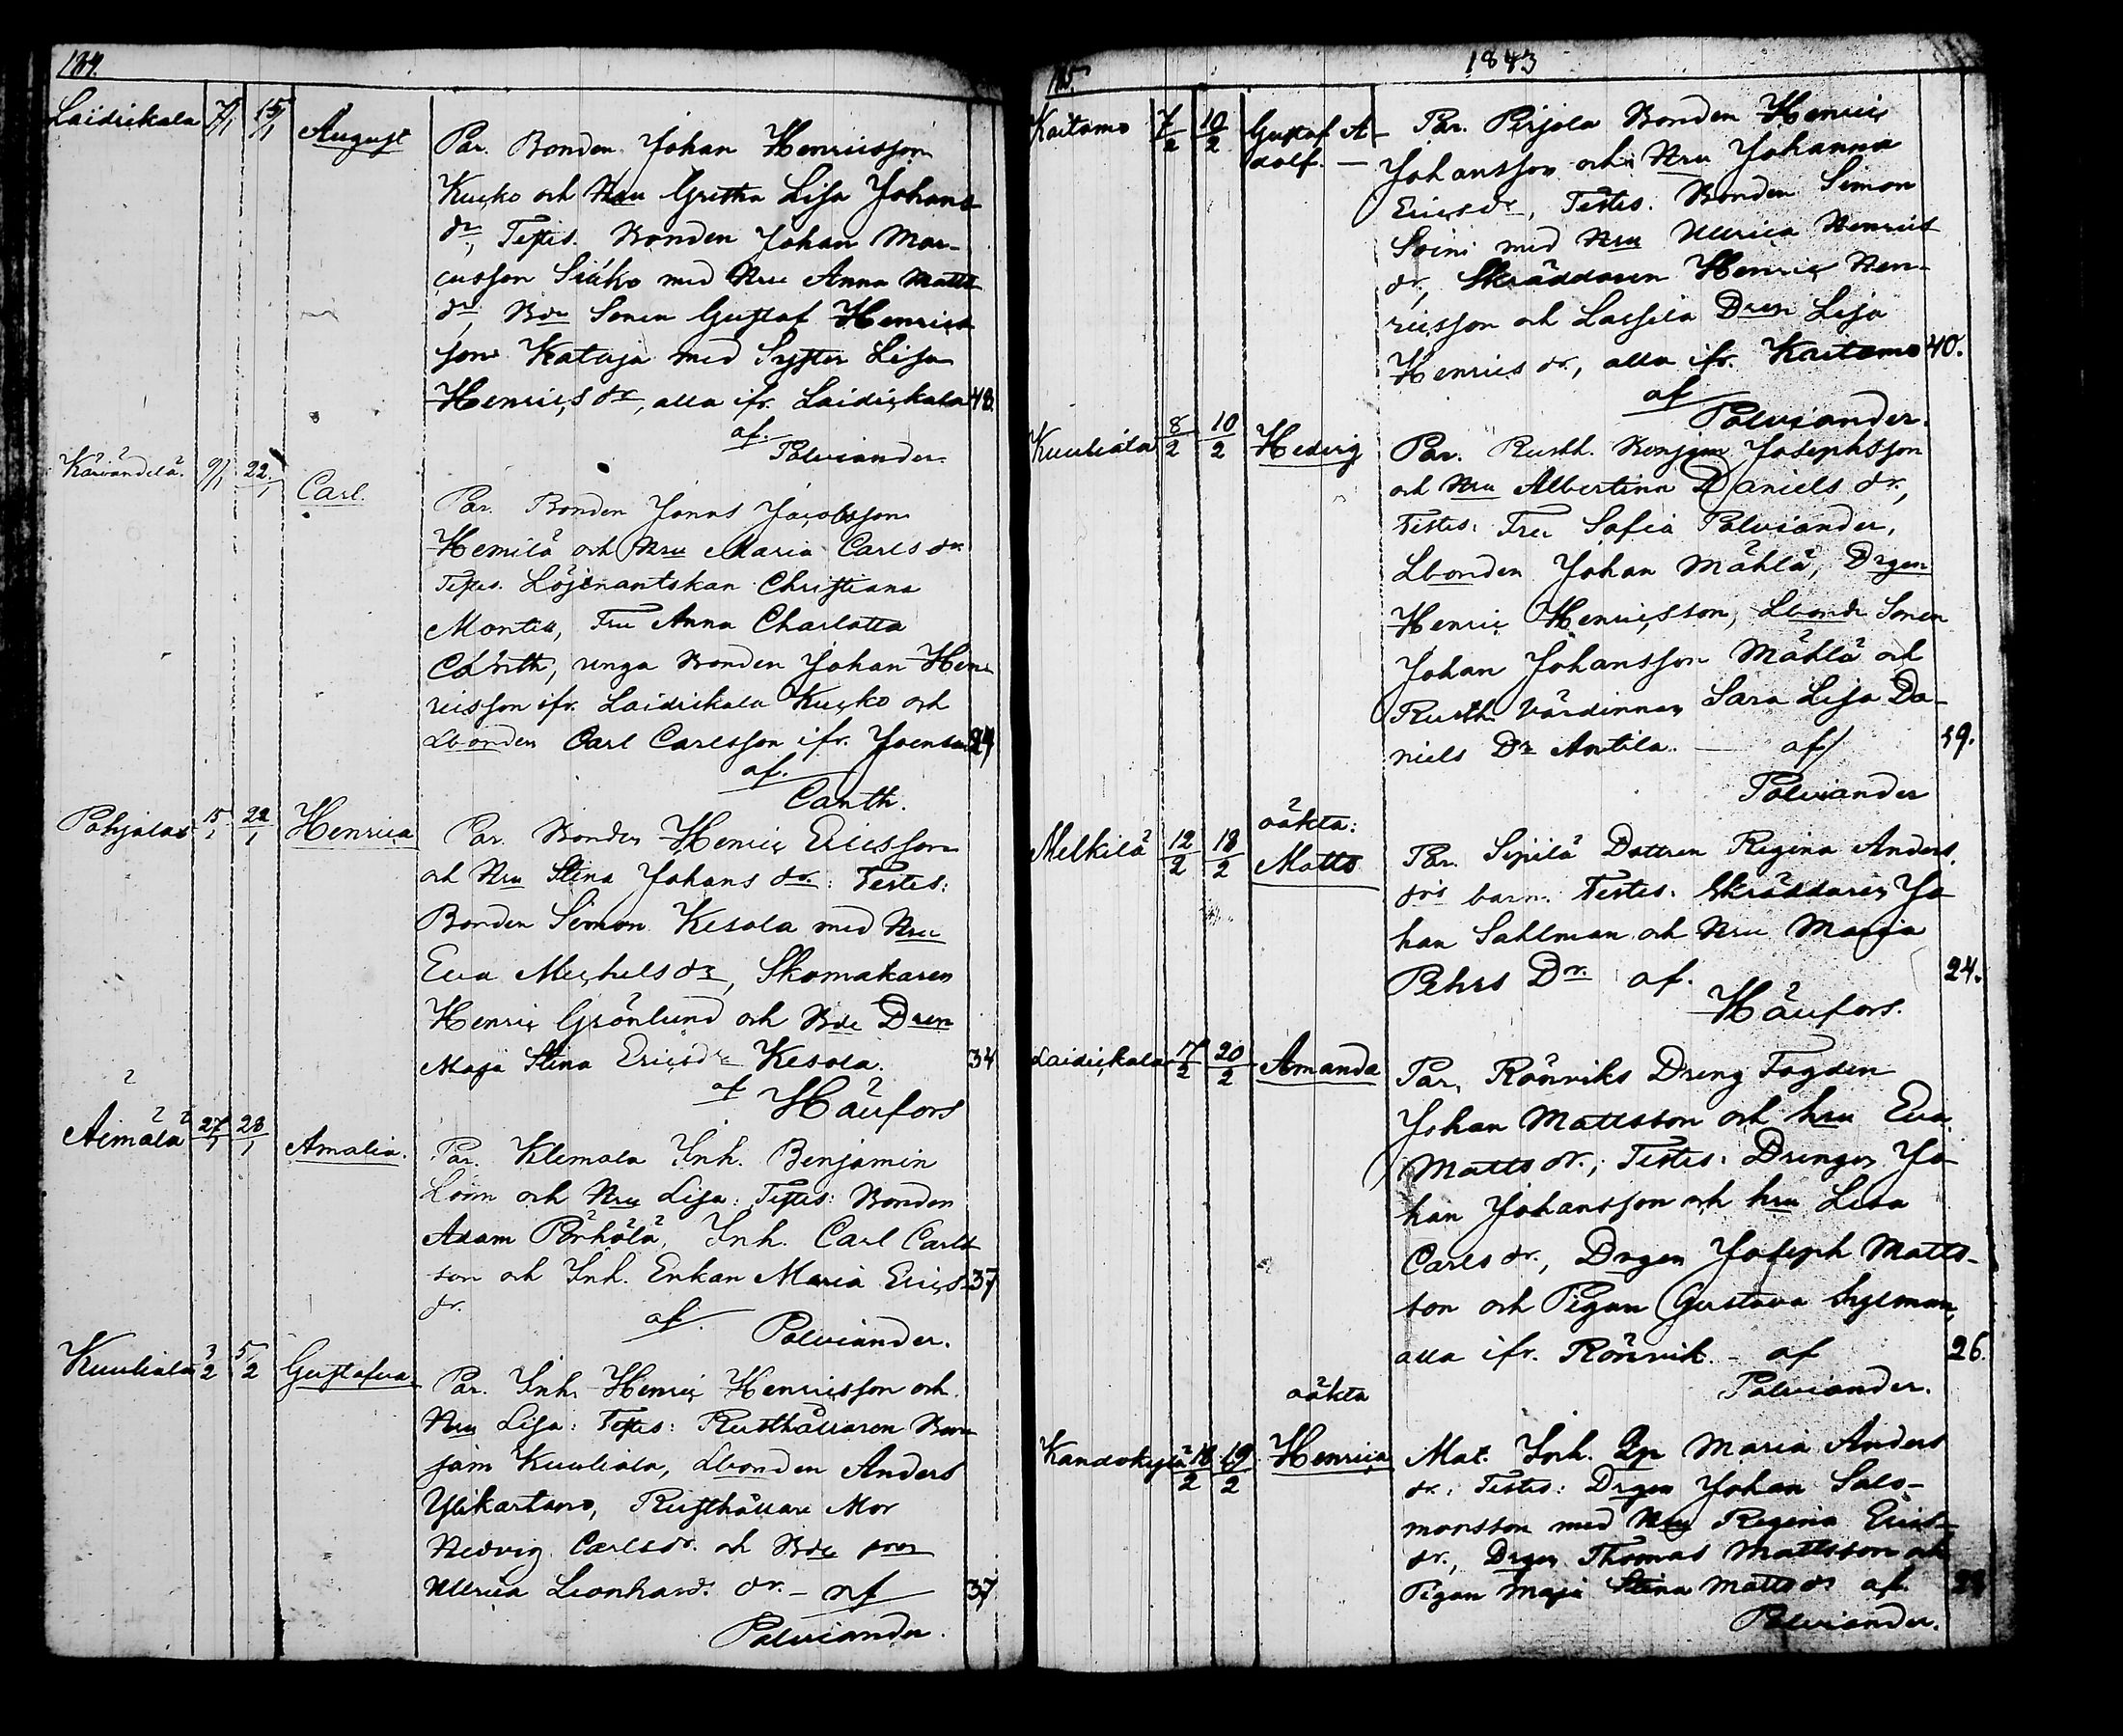 184.
Laidickala 7/1 15/1 August
Par. Bonden Johan Henricsson
Kucko och Hru Gretha Lisa Johans
dr, Testes. Bonden Johan Mar-
cusson Siuko med Hru Anna Matts
dr, Bde Sonen Gustaf Henrics
son Kataja med Syster Lisa
Henrics dr, alla ifr. Laidickala 48.
af.
Palviander.
Karvandelä. 9/1 22/1 Carl.
Par. Bonden Jonas Jacobsson
Hemilä och Hru Maria Carls dr.
Testes. Löjtnantskan Christiana
Montin, Fru Anna Charlotta
Canth, unga Bonden Johan Hen
ricsson ifr. Laidickala Kucko och
Lbonden Carl Carlsson ifr. Joensu 29
af.
Canth.
Pohjalax 15/1 22/1 Henrica
Par. Bonden Henric Ericsson
och Hru Stina Johans dr.: Testes:
Bonden Simon Kesola med Hru
Eva Michels dr, Skomakaren
Henric Grönlund och Bde Dren
Maja Stina Erics dr Kesola. 34
af
Häufors
Aimälä 27/1 28/1 Amalia.
Par. Klemola Inh. Benjamin
Lönn och Hru Lisa: Testes: Bonden
Adam Pörhölä, Inh. Carl Carls
son och Inh. Enkan Maria Erics 37
dr.
af.
Palviander.
Kuuliala 3/2 5/2 Gustafva.
Par. Inh. Henric Henricsson och
Hru Lisa: Testes: Rusthållaren Ben
jam Kuuliala, Lbonden Anders
Ylikartano, Rusthållare Mor
Hedvig Carls dr. och Bde
Ulrica Leonhards dr. – af 37
Palviander.
185. 1843
Kaitamo 7/2 10/2 Gustaf A-
dolf. —
Par. Pirjola Bonden Henric
Johansson och Hru Johanna
Erics dr, Testes. Bonden Simon
Soini med Hru Ulrica Henrics
dr, Skräddaren Henric Hen-
ricsson och Lassila Dren Lisa
Henrics dr., alla ifr. Kaitamo 40.
af
Palviander.
Kuuliala 8/2 10/2 Hedvig
Par. Rusth. Benjam Josephsson
och Hru Albertina Daniels dr.,
Testes: Fru Sofia Palviander,
Lbonden Johan Mähla, Drgen
Henric Henricsson, Lbonde Sonen
Johan Johansson Mähla och
Rusth. Värdinnan Sara Lisa Da-
niels Dr Antila. — af/ 19.
Palviander
oäkta:
Melkilä 12/2 18/2 Matts
Par. Sipilä Dottren Regina Anders
drs barn. Testes. Skräddaren Jo
han Sahlman och Hru Maria
Pehrs Dr. af. 24.
Häufors.
Laidickala 17/2 20/2 Amanda
Par. Rönviks Dreng Fogden
Johan Mattsson och hru Eva
Matts dr.; Testes: Drengen Jo
han Johansson och hru Lisa
Carls dr., Drgen Joseph Matts-
son och Pigan Gustava
alla ifr. Rönvik. – af 26.
Palviander.
oäkta
Kandokylä 18/2 19/2 Henrica
Mat. Inh. Maria Anders
dr.: Testes: Drgen Johan Salo-
monsson med Hru Regina Erics
dr., Drgen Thomas Mattsson och
Pigan Maja Stina Matts dr af.
Palviander.